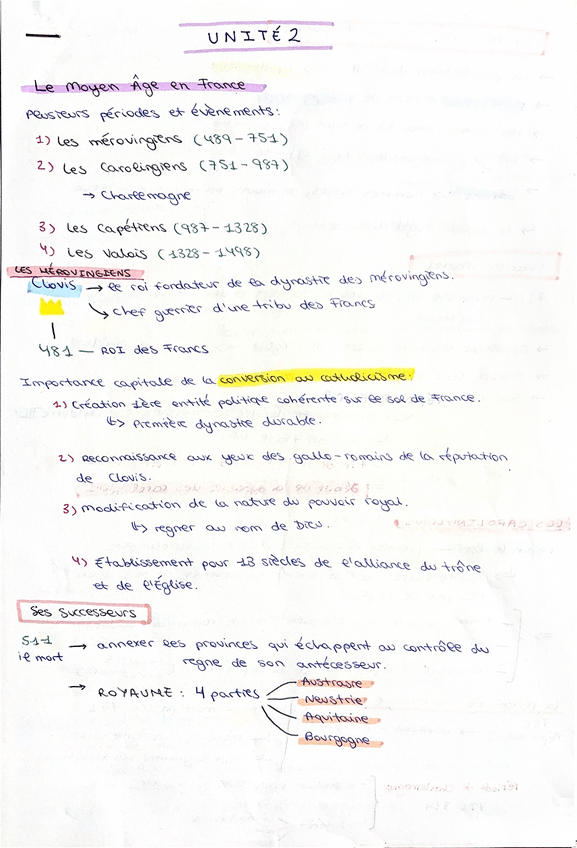 UNITÉ 2
Le Moyen Âge en France
Plusieurs périodes et évènements:
1) Les mérovingiens (489-751)
2) Les Carolingiens (751-987)
→ Charlemagne
3) Les Capétiens (987-1328)
4) Les Valois (1328-1498)
LES MÉROVINGIENS
Clovis → le roi fondateur de la dynastie des mérovingiens.
↳ Chef guerrier d'une tribu des Francs
481 — ROI des Francs
Importance capitale de la conversion au catholicisme:
1) Création 1ère entité politique cohérente sur le sol de France.
↳ Première dynastie durable.
2) Reconnaissance aux yeux des gallo-romains de la réputation
de Clovis.
3) Modification de la nature du pouvoir royal.
↳ regner au nom de Dieu.
4) Établissement pour 13 siècles de l'alliance du trône
et de l'Église.
Ses successeurs
511 → annexer les provinces qui échappent au contrôle du
il mort règne de son antécesseur.
→ ROYAUME: 4 parties
Austrasie
Neustrie
Aquitaine
Bourgogne